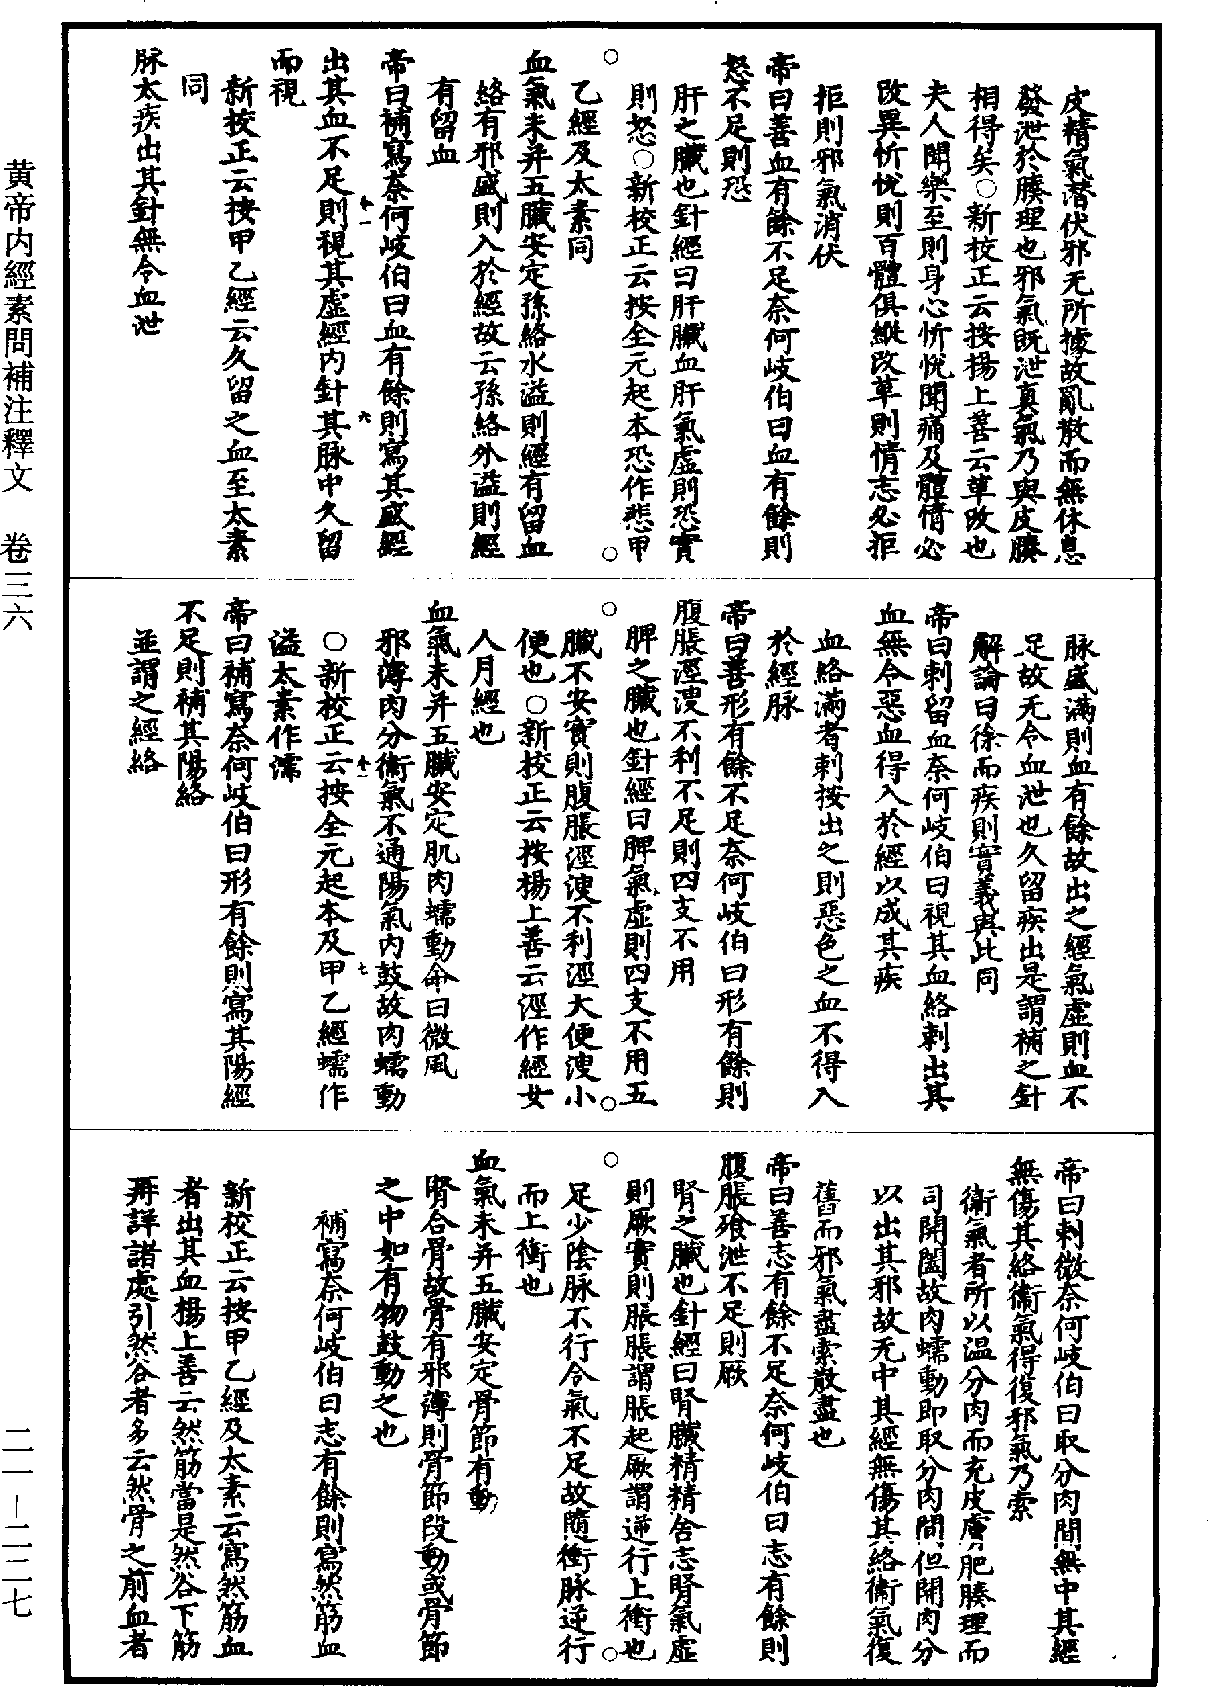 皮精氣潛伏邪无所據故亂散而無休息
發泄於腠理也邪氣既泄真氣乃與皮腠
相得矣○新校正云按楊上善云革改也
夫人聞樂至則身心忻悅聞痛及體情必
改異忻悅則百體俱縱改革則情志必拒
拒則邪氣消伏
帝曰善血有餘不足奈何岐伯曰血有餘則
怒不足則恐
肝之臟也針經曰肝臟血肝氣虛則恐實
則怒○新校正云按全元起本恐作悲甲
乙經及太素同
血氣未并五臟安定孫絡水溢則經有留血
絡有邪盛則入於經故云孫絡外溢則經
有留血
帝曰補寫奈何岐伯曰血有餘則寫其盛經
出其血不足則視其虛經內針其脉中久留
而視
新校正云按甲乙經云久留之血至太素
同
脉太疾出其針無令血泄
脉盛滿則血有餘故出之經氣虛則血不
足故无令血泄也久留疾出是謂補之針
解論曰徐而疾則實義與此同
帝曰刺留血奈何岐伯曰視其血絡刺出其
血無令惡血得入於經以成其疾
血絡滿者刺按出之則惡色之血不得入
於經脉
帝曰善形有餘不足奈何岐伯曰形有餘則
腹脹涇溲不利不足則四支不用
脾之臟也針經曰脾氣虛則四支不用五
臟不安實則腹脹涇溲不利涇大便溲小
便也○新校正云按楊上善云涇作經女
人月經也
血氣未并五臟安定肌肉蠕動命曰微風
邪薄肉分衛氣不通陽氣內鼓故肉蠕動
○新校正云按全元起本及甲乙經蠕作
溢太素作濡
帝曰補寫奈何岐伯曰形有餘則寫其陽經
不足則補其陽絡
並謂之經絡
帝曰刺微奈何岐伯曰取分肉間無中其經
無傷其絡衛氣得復邪氣乃索
衛氣者所以温分肉而充皮膚肥腠理而
司開闔故肉蠕動即取分肉間但開肉分
以出其邪故无中其經無傷其絡衛氣復
舊而邪氣盡索散盡也
帝曰善志有餘不足奈何岐伯曰志有餘則
腹脹飧泄不足則厥
腎之臟也針經曰腎臟精精舍志腎氣虛
則厥實則脹脹謂脹起厥謂逆行上衝也
足少陰脉不行令氣不足故隨衝脉逆行
而上衝也
血氣未并五臟安定骨節有動
腎合骨故骨有邪薄則骨節段動或骨節
之中如有物鼓動之也
補寫奈何岐伯曰志有餘則寫然筋血
新校正云按甲乙經及太素云寫然筋血
者出其血楊上善云然筋當是然谷下筋
再詳諸處引然谷者多云然骨之前血者
黄帝内經素問補注釋文 卷三六
二一—二二七